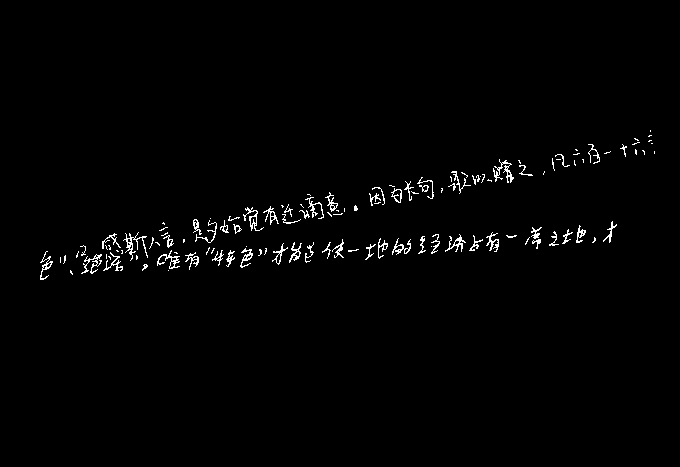 感斯人言，是夕始觉有迁谪意。因为长句，歌以赠之，凡六百一十六言
色”、绝招。唯有“特色”才能使一地的经济占有一席之地，才